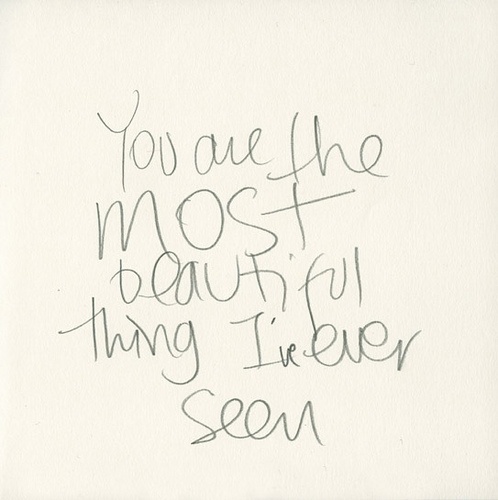 You are the
MOST
beautiful
thing I've ever
seen